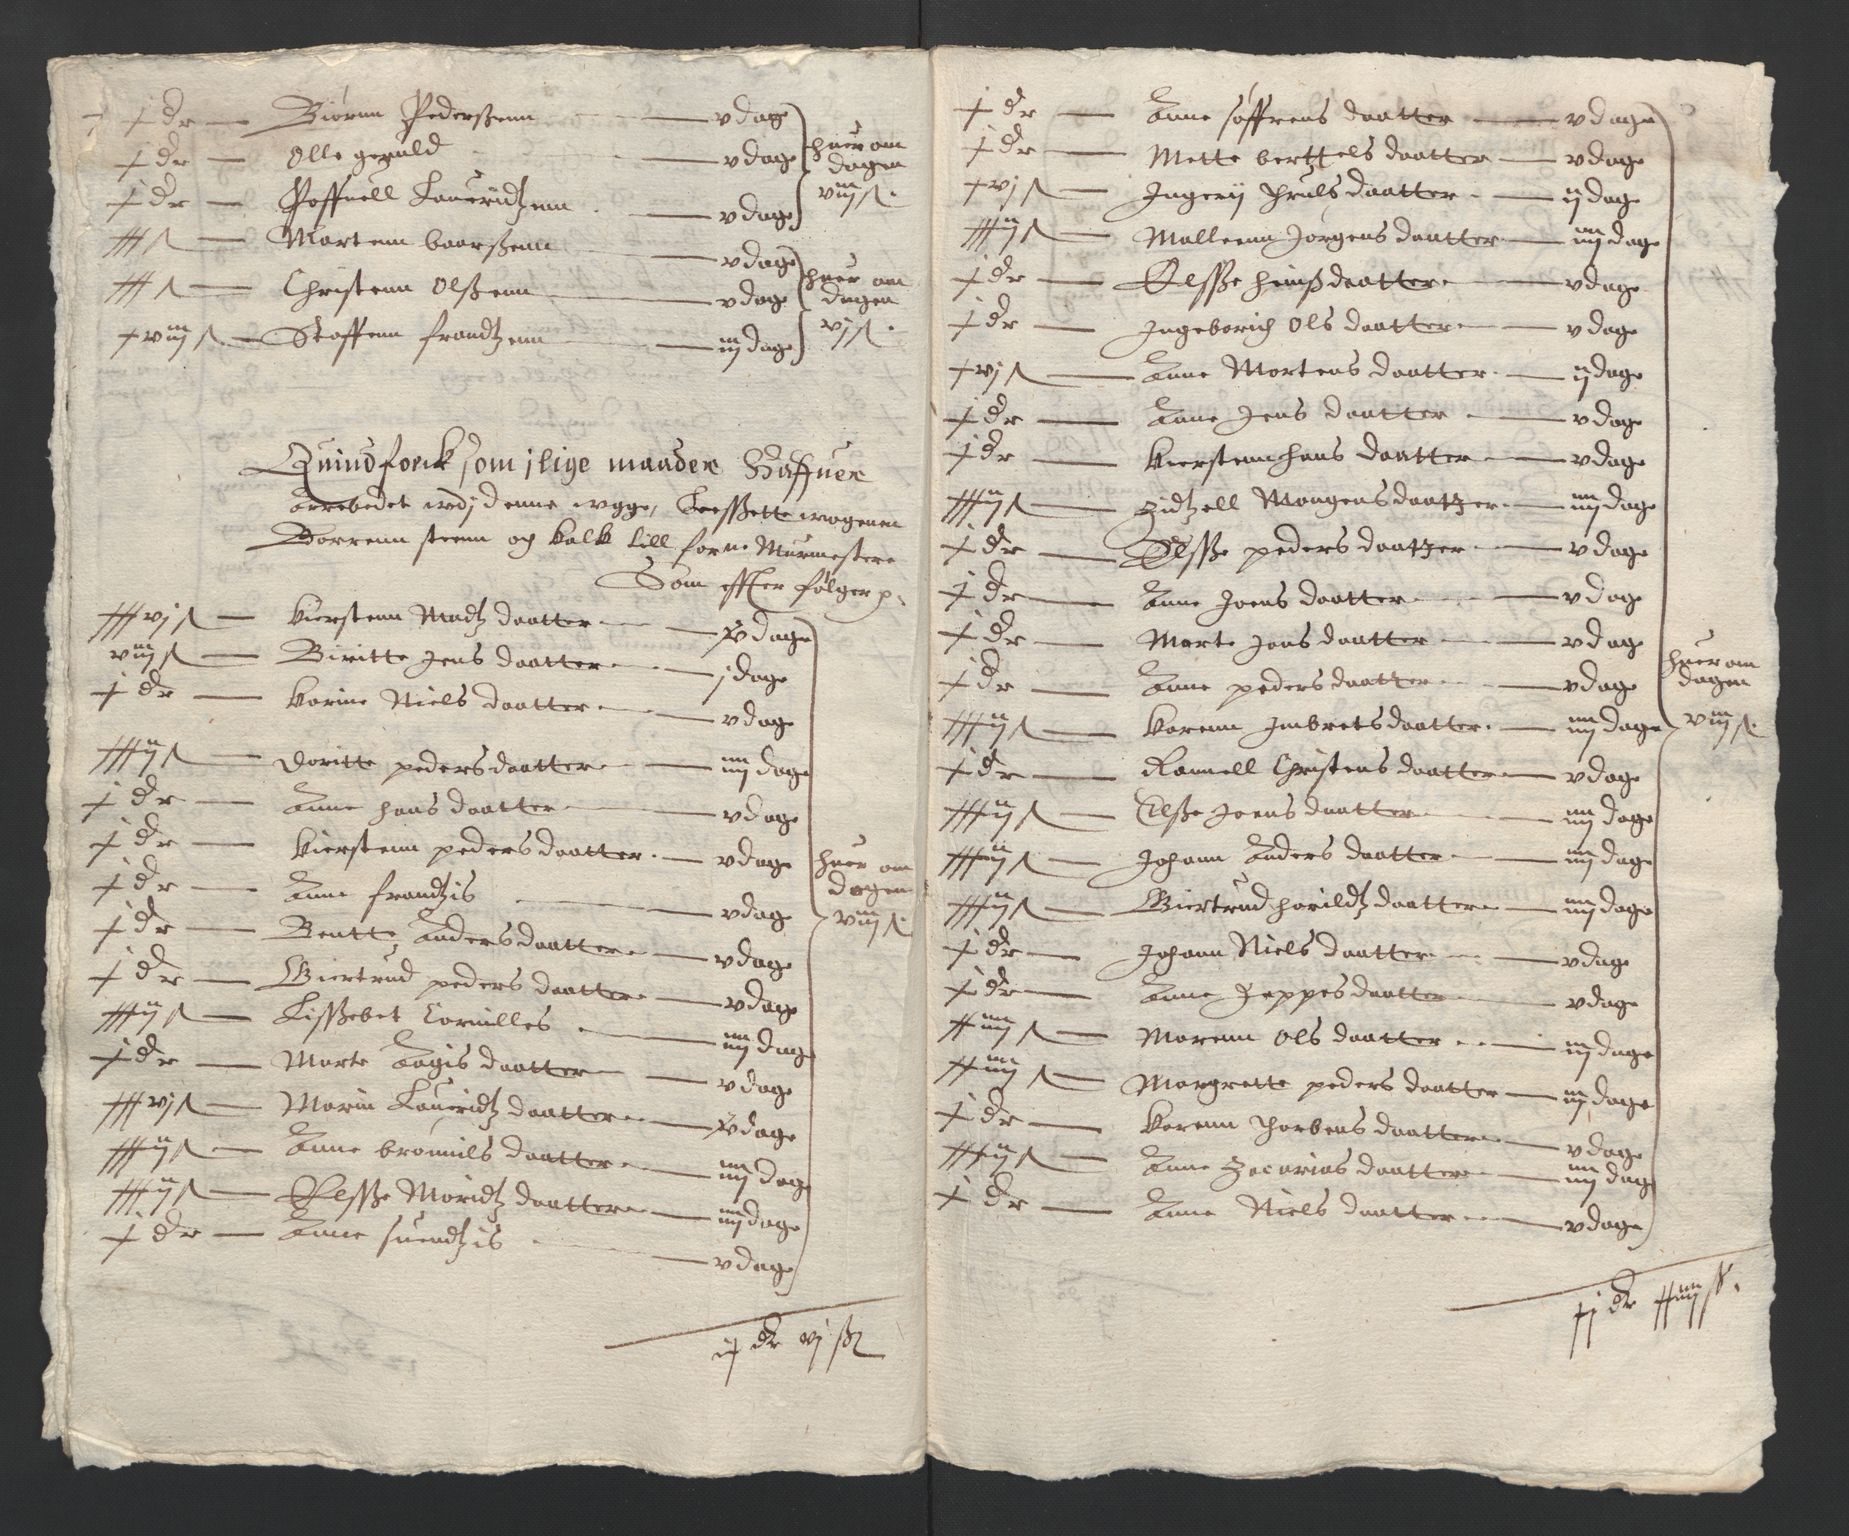 j dr — Biórnn Pederßenn — v dage
j dr — Olle — v dage
j dr — Poffuell Lauridtzenn — v dage
huer om
dagen
viij s.
Mortenn baarßenn — v dage
Christenn Olßenn — v dage
Staffenn frandtzenn — iij dage
huer om
dagen
vj s.
Quindfolck som j lige maader Haffuer
Arrebedet vdj denne vge,
steenn og kalk till forne Murmestere
Som effter følger
Kierstenn Madtz daatter — v dage
viij s — Biritte Jens daatter — j dage
j dr — Karine Niels daatter — v dage
Doritte peders daatter — iiij dage
j dr — Anne Hans daatter — v dage
j dr — Kierstenn peders daatter — v dage
j dr — Anne frandtzis — v dage
j dr — Bentte Anders daatter — v dage
j dr — Giertrud peders daatter — v dage
Lißebet Cornilles — iiij dage
j dr — Marte Aagis daatter — v dage
Marin Lauridtz daatter — v dage
Anne daatter — iiij dage
Elsße Moridtz daatter — iiij dage
j dr — Anne suendtzis — v dage
huer om
dagen
viij s.
dr vj ß
j dr — Anne søffrens daatter — v dage
j dr — Mette berttels daatter — v dage
Ingerij Truls daatter — ij dage
Malleenn Jørgens daatter — iiij dage
j dr — Elsße daatter — v dage
j dr — Ingeborich Ols daatter — v dage
Anne Mortens daatter — ij dage
j dr — Anne Jens daatter — v dage
j dr — Kierstenn Hans daatter — v dage
Zidtzell Mogens daatter — iiij dage
j dr — Elsße peders daatter — v dage
j dr — Anne Joens daatter — v dage
j dr — Marte Jens daatter — v dage
j dr — Anne peders daatter — v dage
Karenn Imbrets daatter — iiij dage
j dr — Rannell Christens daatter — v dage
Elsße Joens daatter — iiij dage
Johann Anders daatter — iiij dage
Giertrud harildtz daatter — iiij dage
j dr — Johann Niels daatter — v dage
j dr — Anne Jeppes daatter — v dage
Marenn Ols daatter — iij dage
Margrette peders daatter — iij dage
j dr — Karenn Thorbens daatter — v dage
Anne Zacarias daatter — iiij dage
j dr — Anne Niels daatter — v dage
huer om
dagen
viij s.